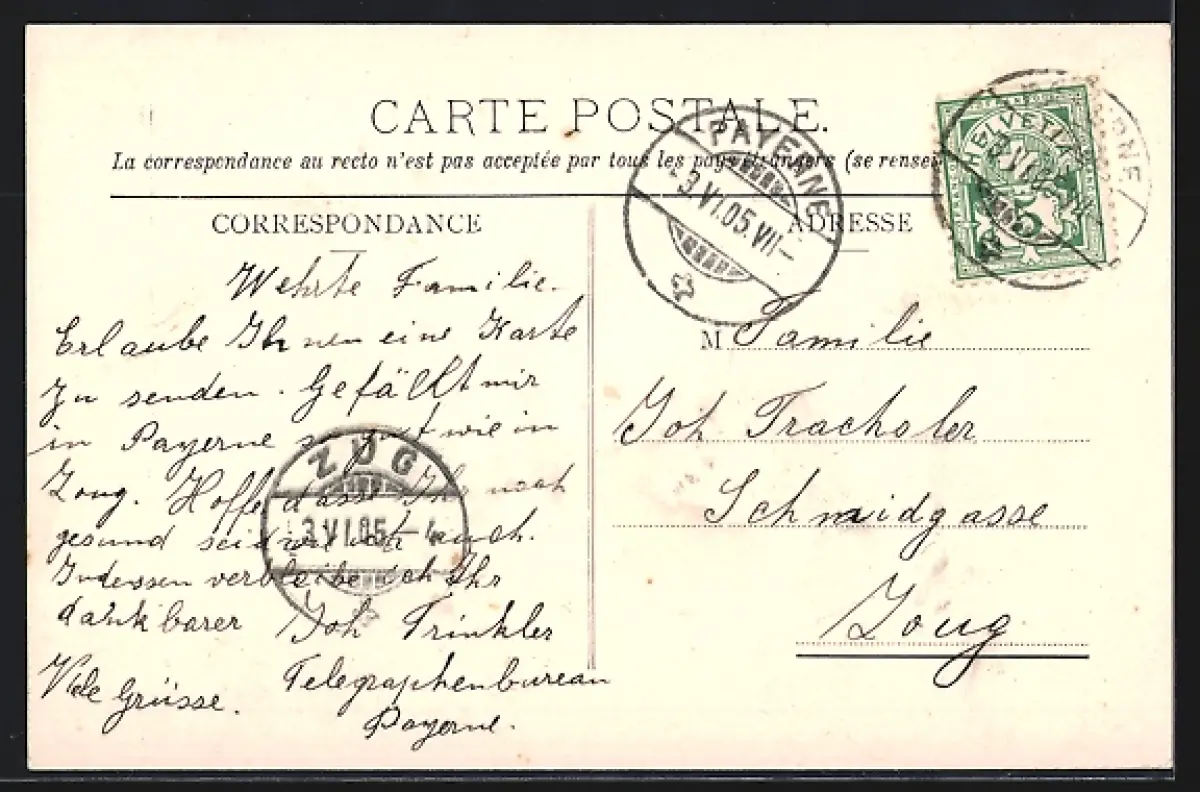 CARTE POSTALE.
La correspondance au recto n'est pas acceptée par tous les pays étrangers (se rensei
CORRESPONDANCE
ADRESSE
Wehrte Familie.
Erlaube Ihnen eine Karte
zu senden. Gefällt mir
in Payerne so gut wie in
Zoug. Hoffe dass Ihr noch
gesund seid wie ich auch.
Indessen verbleibe ich Ihr
dankbarer Joh Trinkler
Viele Grüsse.
Telegraphenbureau
Payerne.
M Familie
Joh Trachsler
Schmidgasse
Zoug
PAYERNE
3.VI.05.VII-
ZUG
3.VI.05.-4
HELVETIA
5